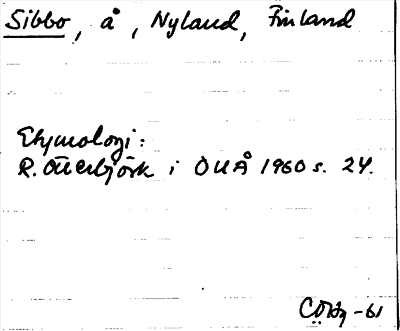 Sibbo, å, Nyland, Finland
Etymologi:
R. Otterbjörk i OUÅ 1960 s. 24.
-61